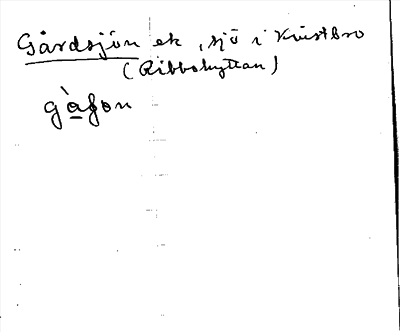 Gårdsjön ek, sjö i Kvistbro
(Ribbohyttan)
gà̱ʃon